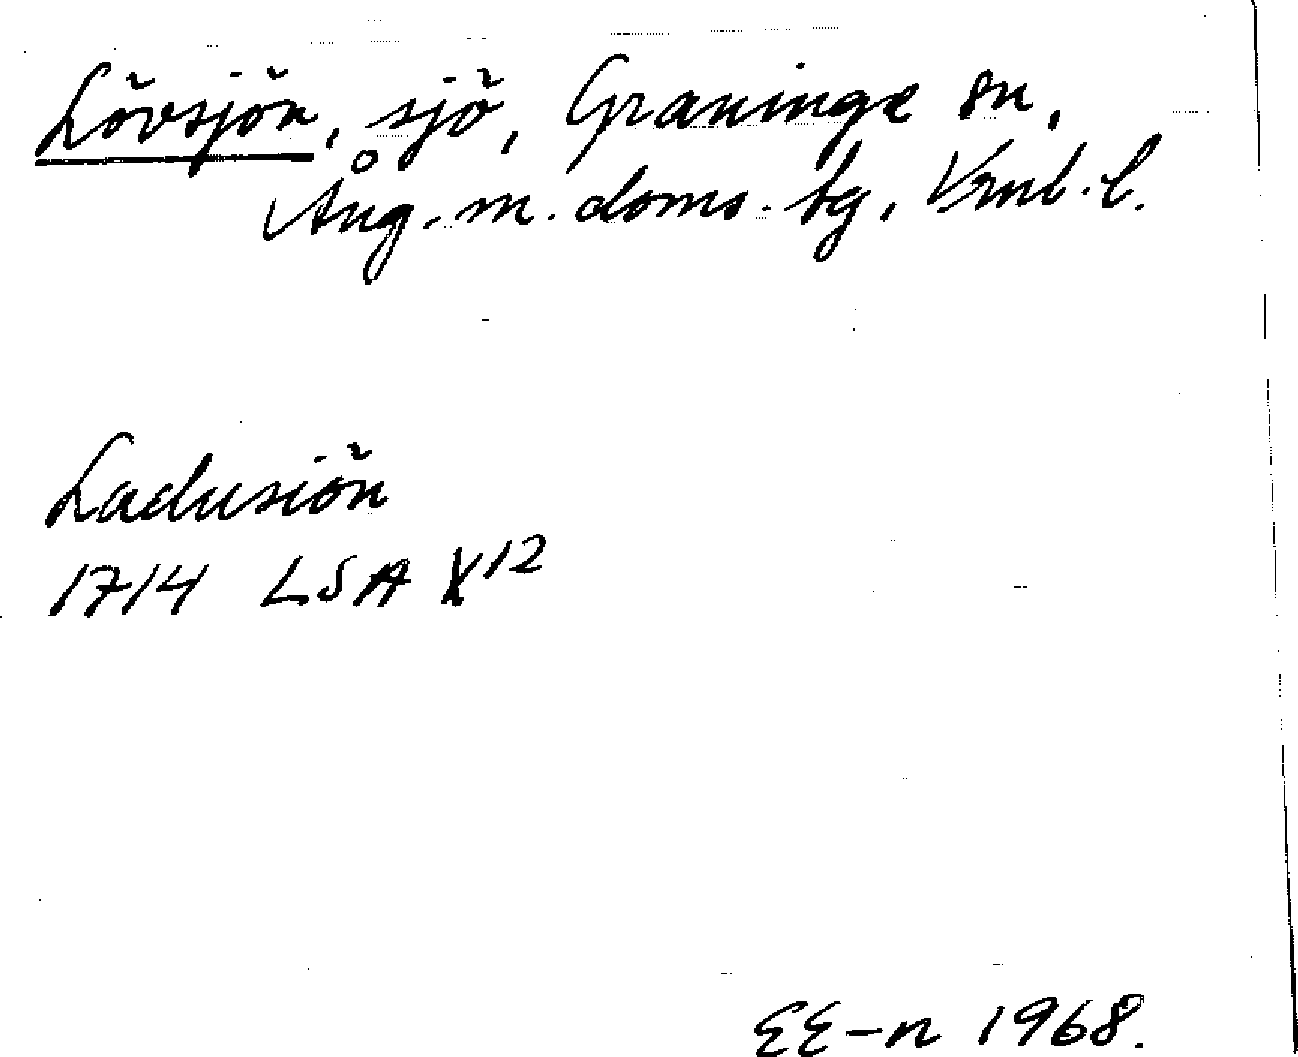 Lövsjön, sjö, Graninge sn,
Ång. m. doms. tg, Vrnl. l.
Ladusiön
1714 LSA X12
EE-n 1968.